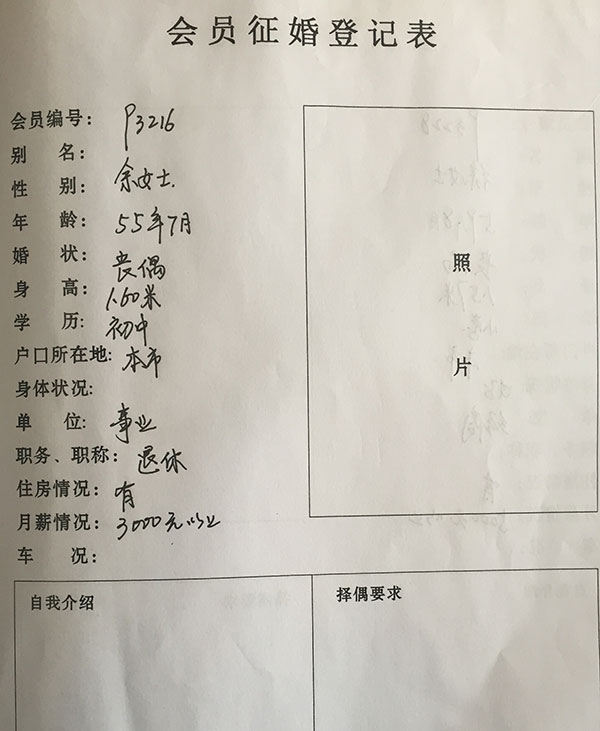 会员征婚登记表
会员编号: P3216
别 名:
性 别: 余女士.
年 龄: 55年7月
婚 状: 丧偶
身 高: 1.60米
学 历: 初中
户口所在地: 本市
身体状况:
单 位: 事业
职务、职称: 退休
住房情况: 有
月薪情况: 3000元以上
车 况:
照
片
自我介绍
择偶要求